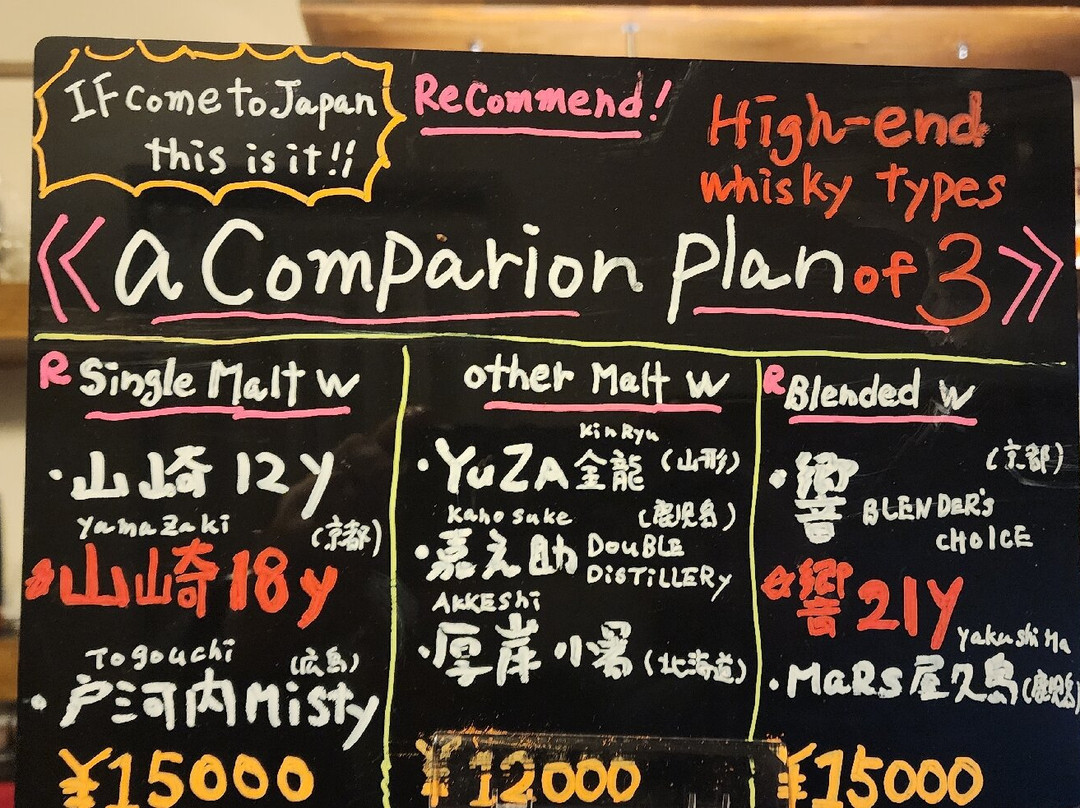 IF come to Japan
this is it!!
Recommend!
High-end
whisky types
《a Comparion plan of 3》
R Single Malt W
・山崎 12y
yamazaki
(京都)
☆山崎 18y
Togouchi
(広島)
・戸河内 Misty
¥15000
other Malt W
KinRyu
・YuZA 金龍 (山形)
Kanosuke
(鹿児島)
・嘉之助 DouBLE
DiSTiLLERy
AKKEShi
・厚岸 小暑 (北海道)
¥12000
R Blended W
(京都)
・響 BLENDER's
CHOICE
☆響 21y
yakushiMa
・MaRS 屋久島 (鹿児島)
¥15000